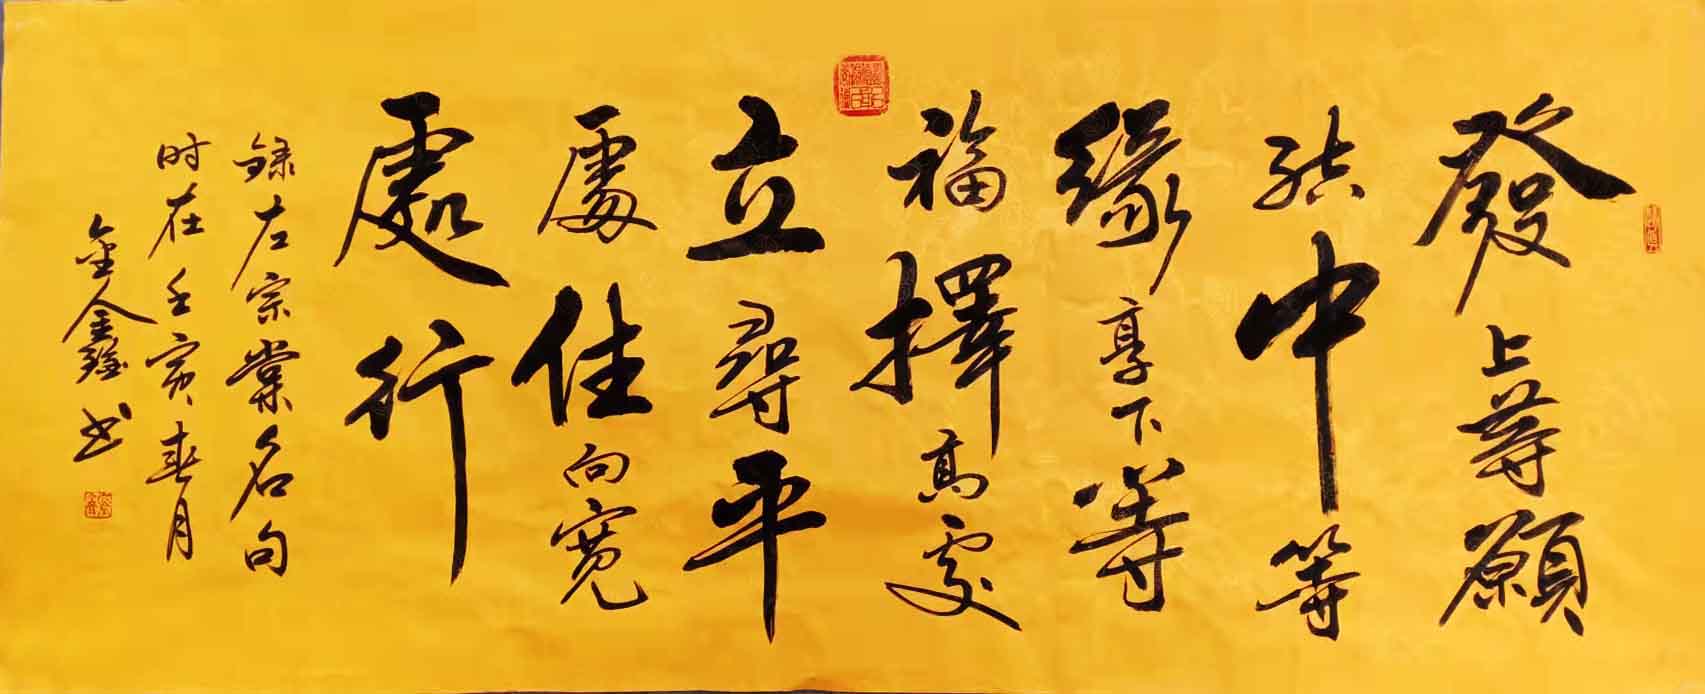 發上等願
結中等
緣享下等
福擇高處
立尋平
處住向寬
處行
録左宗棠名句
时在壬寅春月
金鑫书